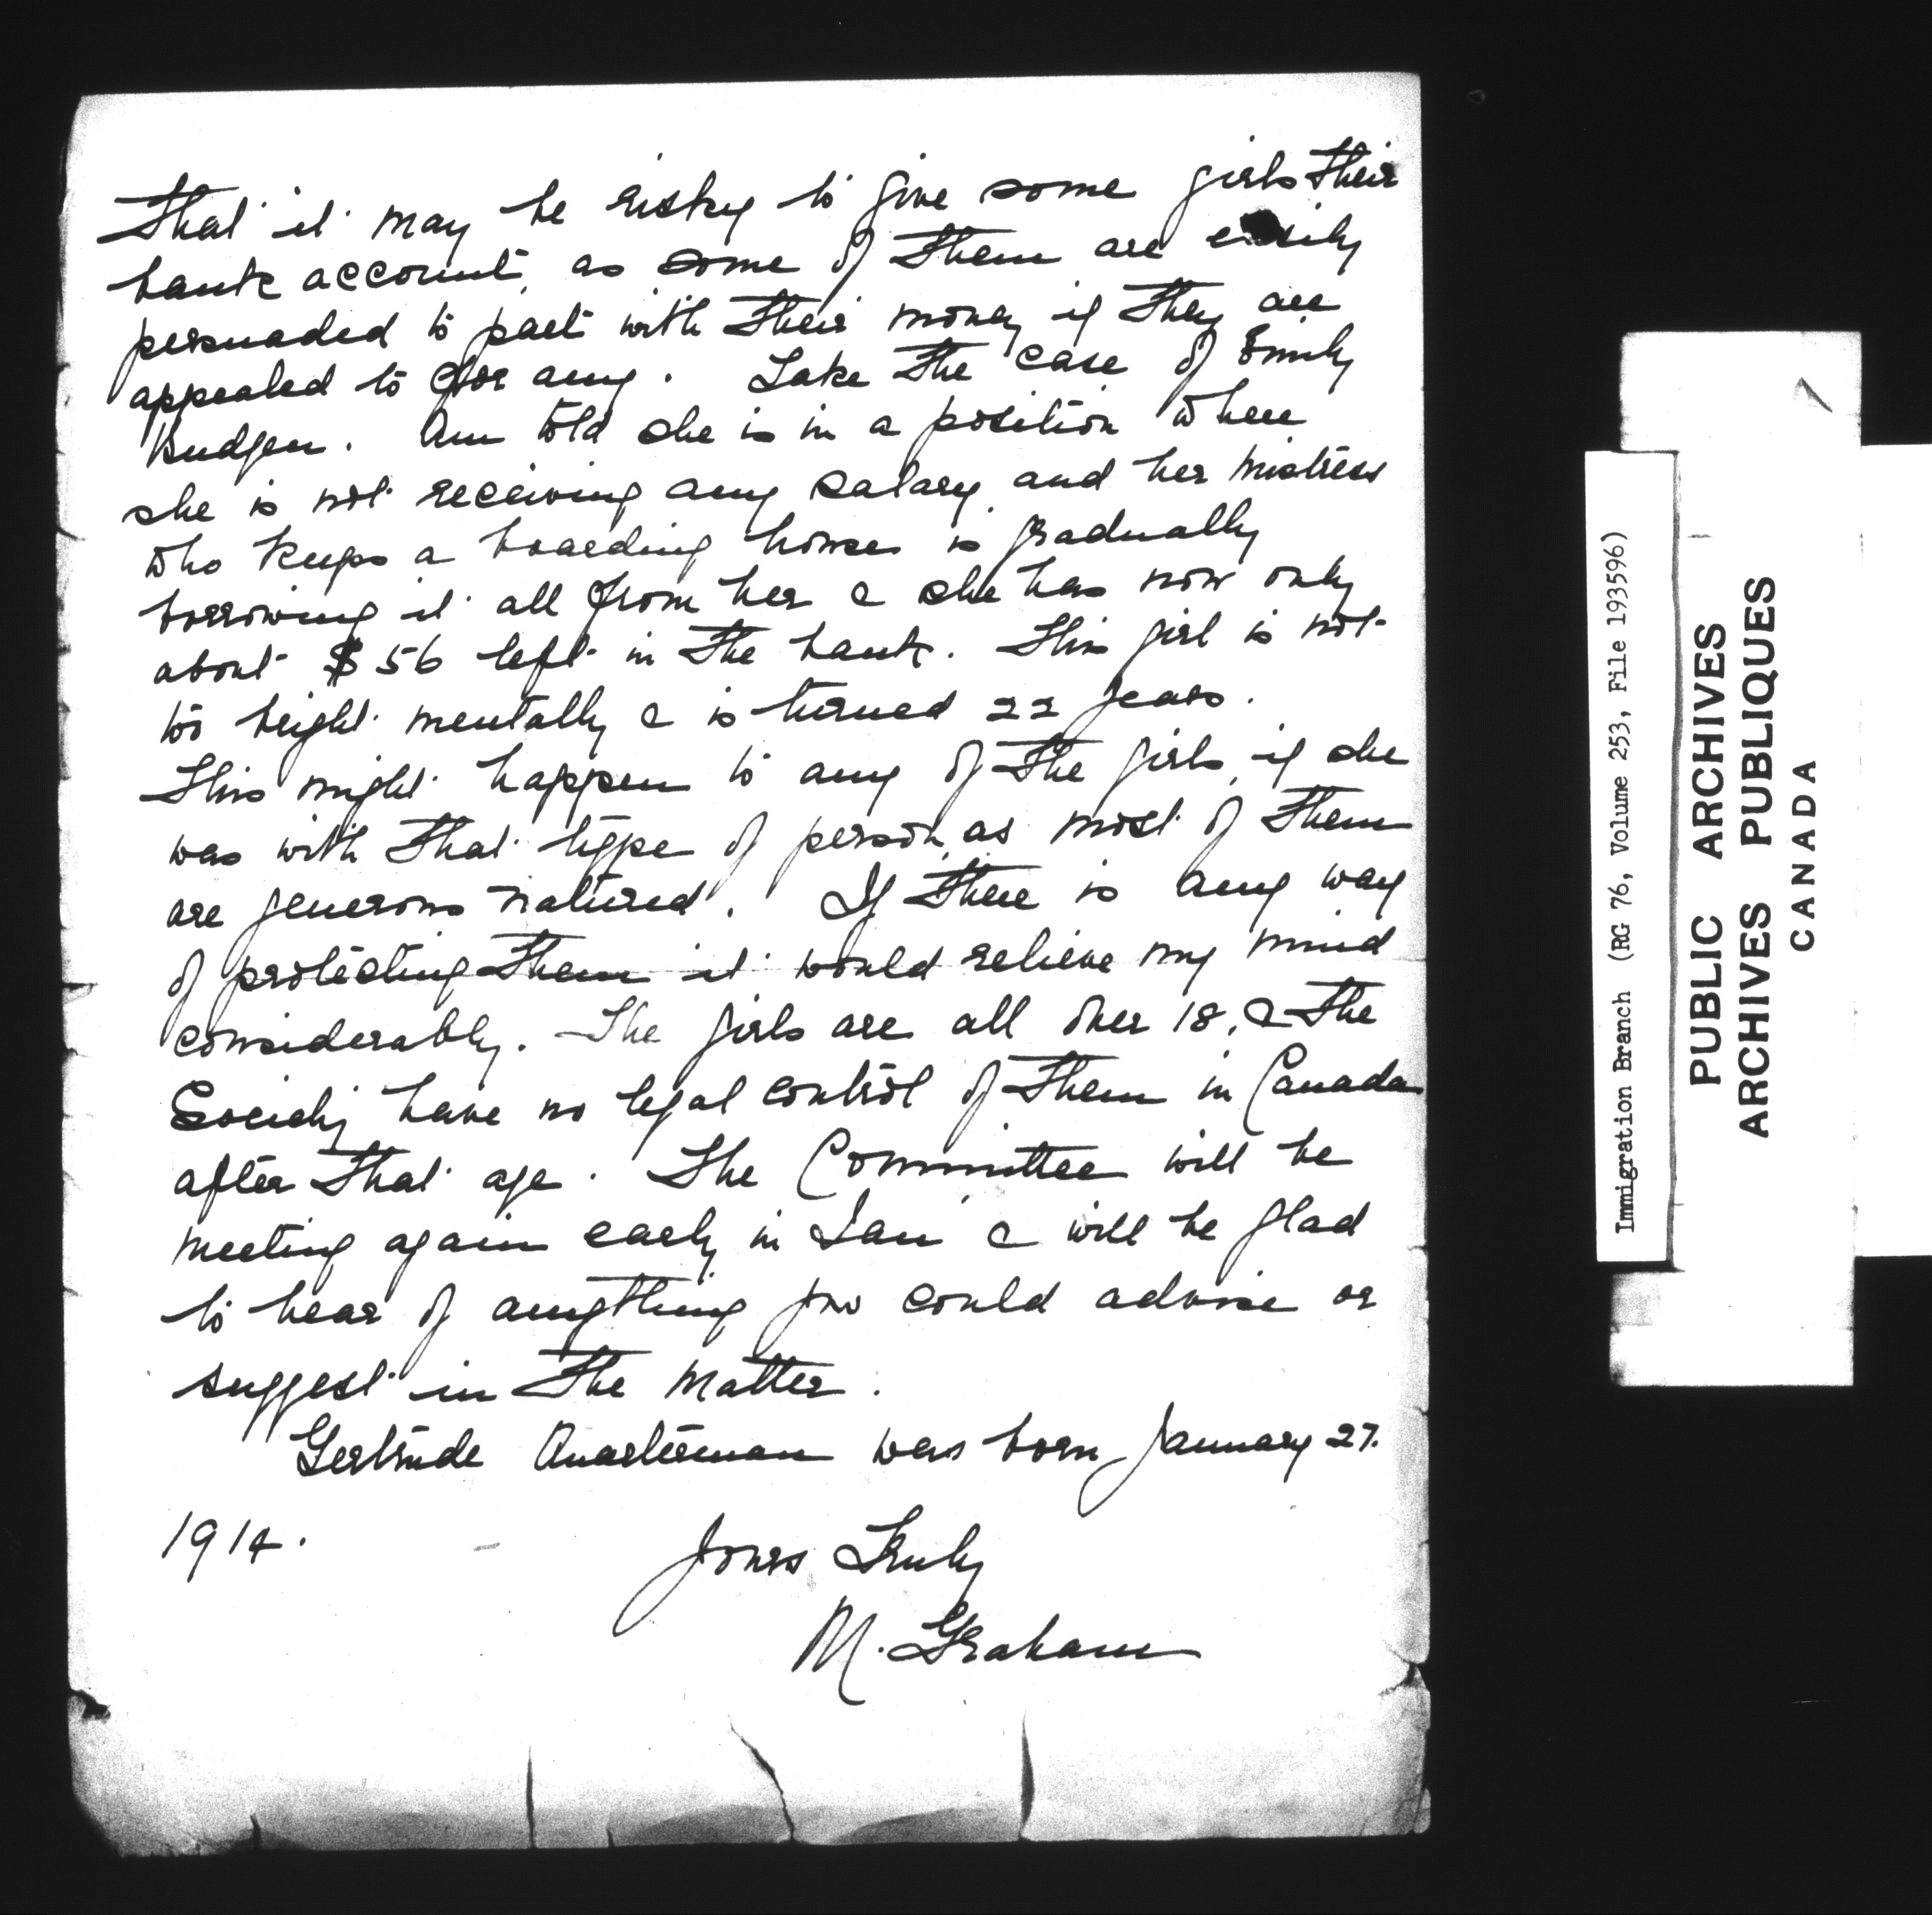 that it may be risky to give some girls their
bank account, as some of them are easily
persuaded to part with their money if they are
appealed to for any. Take the case of Emily
Budgen. Am told she is in a position where
she is not receiving any salary and her mistress
who keeps a boarding house is gradually
borrowing it all from her & she has now only
about $56 left in the bank. This girl is not
too bright mentally & is turned 22 years.
This might happen to any of the girls, if she
was with that type of person, as most of them
are generous natured. If there is any way
of protecting them it would relieve my mind
considerably. The girls are all over 18, & the
Society have no legal control of them in Canada
after that age. The Committee will be
meeting again early in Jan & will be glad
to hear of anything you could advise or
suggest in the matter.
Gertrude Quarterman was born January 27.
1914.
Yours Truly
M. Graham
Immigration Branch (RG 76, Volume 253, File 193596)
PUBLIC ARCHIVES
ARCHIVES PUBLIQUES
CANADA